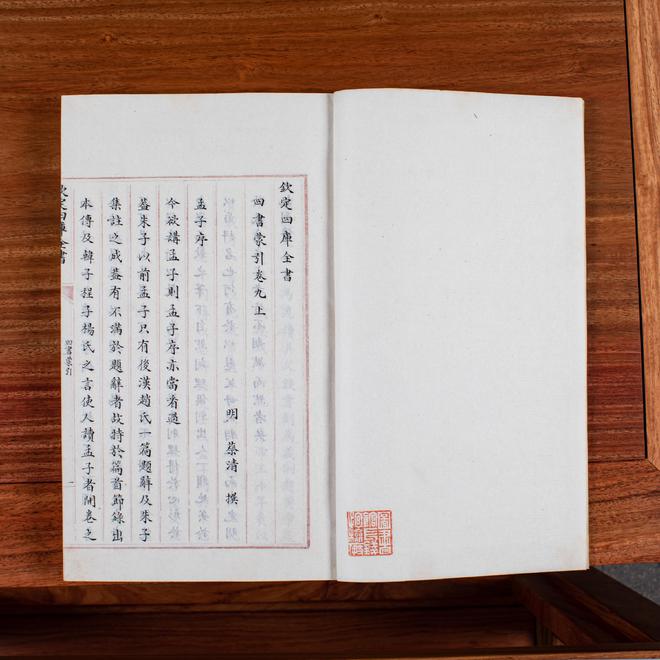 欽定四庫全書
四書蒙引卷九上
明 蔡清 撰
孟子序
今欲講孟子則孟子序亦當看過
蓋朱子以前孟子只有後漢趙氏一篇題辭及朱子
集註之成蓋有不滿於題辭者故特於篇首節錄出
本傳及韓子程子楊氏之言使人讀孟子者開卷之
欽定四庫全書
四書蒙引